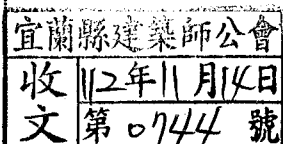 宜蘭縣建築師公會
收文
112年11月14日
第0744號